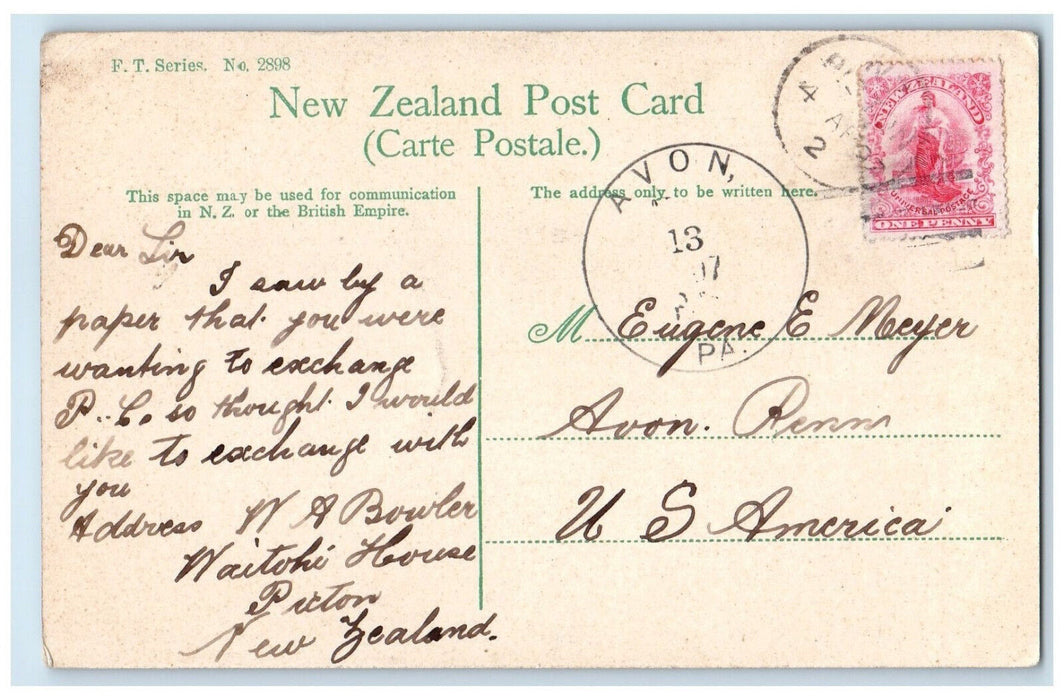 F. T. Series. No. 2898
New Zealand Post Card
(Carte Postale.)
This space may be used for communication
in N. Z. or the British Empire.
The address only to be written here.
Dear Sir
I saw by a
paper that you were
wanting to exchange
P. C. so thought I would
like to exchange with
you
Address W A Bowler
Waitohi House
Picton
New Zealand.
AVON,
13
07
PA.
4 AP
2
NEW ZEALAND
UNIVERSAL POSTAGE
ONE PENNY
M Eugene E Meyer
Avon. Penn
U S America